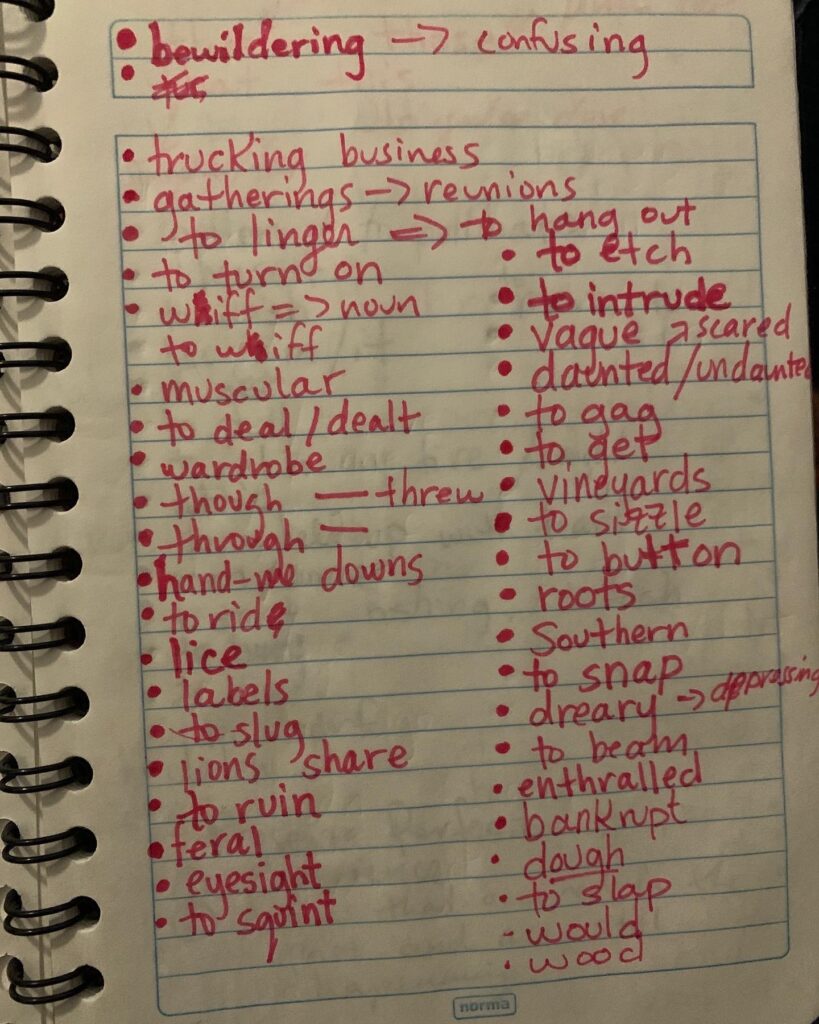 • bewildering → confusing
•
• trucking business
• gatherings → reunions
• to linger => to hang out
• to turn on
• whiff => noun
to whiff
• muscular
• to deal / dealt
• wardrobe
• though — threw
• through —
• hand-me downs
• to ride
• lice
• labels
• to slug
• lions share
• to ruin
• feral
• eyesight
• to squint
• to etch
• to intrude
• vague
→ scared
• daunted / undaunted
• to gag
• to get
• vineyards
• to sizzle
• to button
• roots
• Southern
• to snap
• dreary → depressing
• to beam
• enthralled
• bankrupt
• dough
• to slap
- would
• wood
norma